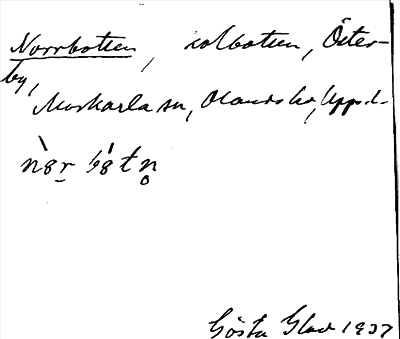 Norrbotten, inlbotten, Öster-
by,
Morkarla sn, Olands hd, Upps.l.
nȯr bȯtn̥
Gösta Glad 1937